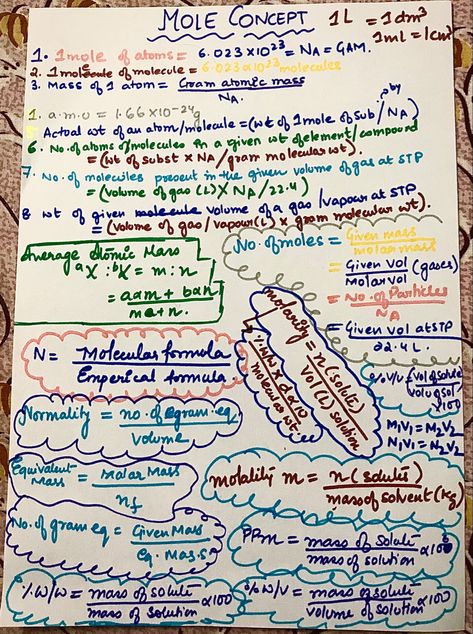 MOLE CONCEPT
1L = 1dm³
1ml = 1cm³
1. 1mole of atoms = 6.023x10²³ = NA = GAM.
2. 1 molecule of molecule = 6.023x10²³ molecules
3. Mass of 1 atom = Gram atomic mass / NA.
1. a.m.u = 1.66x10⁻²⁴g
5 Actual wt of an atom/molecule = (wt of 1mole of sub/by NA)
6. No. of atoms/molecules in a given wt of element/compound
= (wt of subst x NA/gram molecular wt).
7. No. of molecules present in the given volume of gas at STP
= (volume of gas (L) X NA/22.4)
8 wt of given molecule volume of a gas/vapour at STP
= (volume of gas/vapour(L) x gram molecular wt).
Average Atomic Mass
ᵃX : ᵇX = m:n
= axm + bxn
m+n.
No. of moles = Given mass / molar mass
= Given vol / Molar vol (gases)
= No. of Particles / NA
= Given vol at STP / 22.4 L.
N = Molecular formula / Emperical formula
molarity = n(solute) / vol(L) solution
% w/w x d x 10 / molecular wt
% v/v = vol of solute / vol of sol x100
M₁V₁ = M₂V₂
N₁V₁ = N₂V₂
Normality = no. of gram.eq / volume
Equivalent Mass = Molar Mass / nf
molality m = n (solute) / mass of solvent (kg)
No. of gram eq = Given Mass / Eq. Mass
PPm = mass of solute / mass of solution x10⁶
% w/w = mass of solute / mass of solution x100
% w/v = mass of solute / volume of solution x100